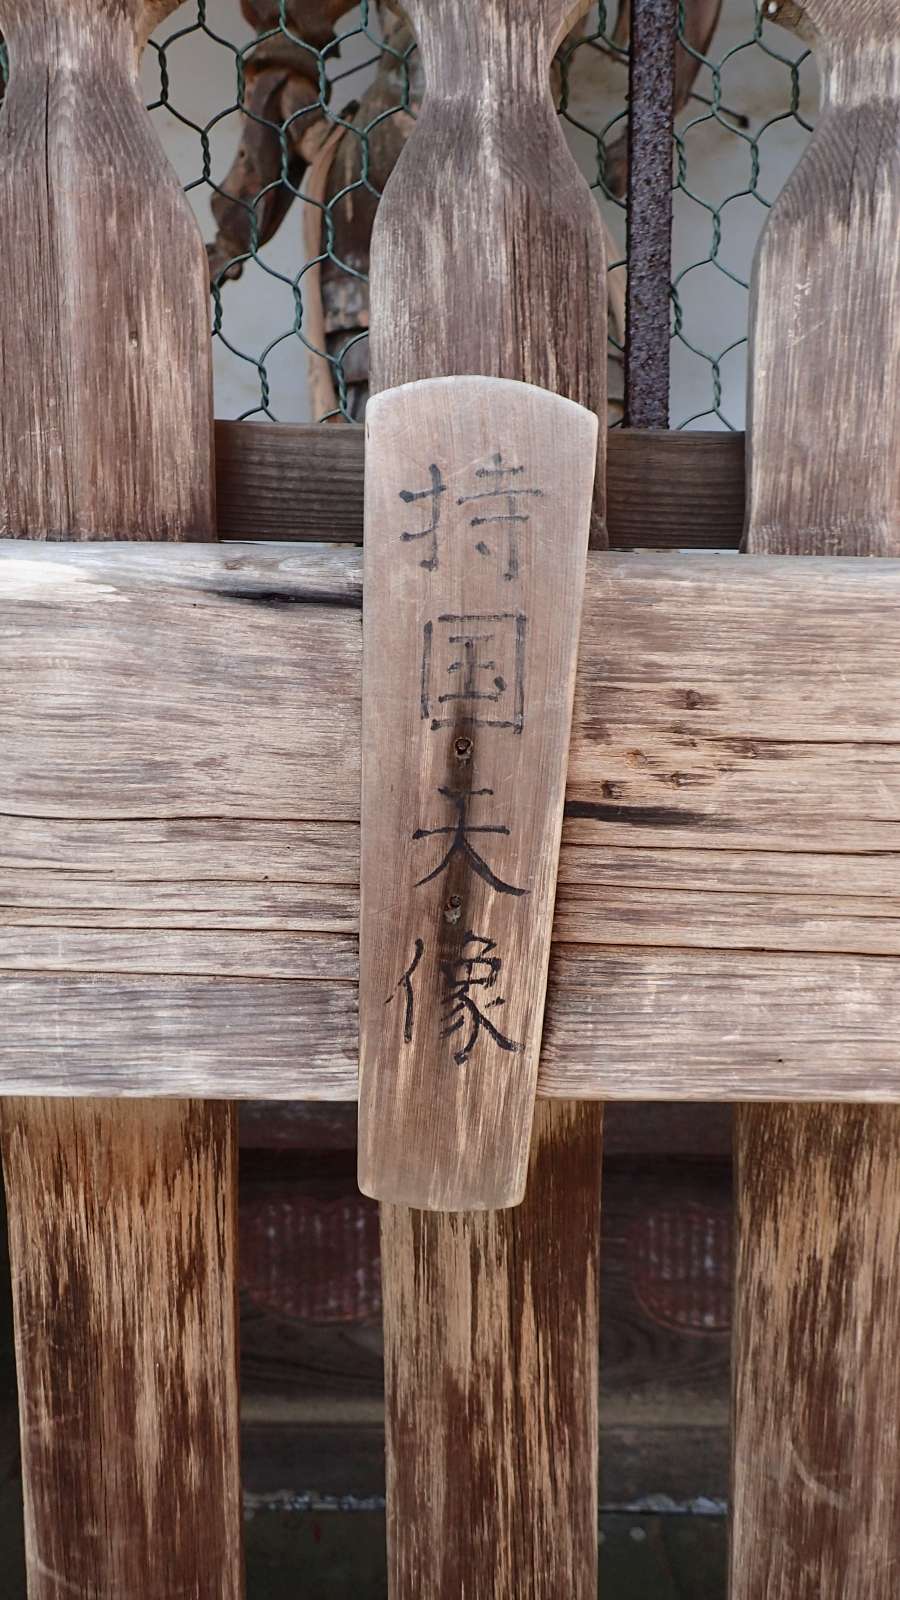 持国天像